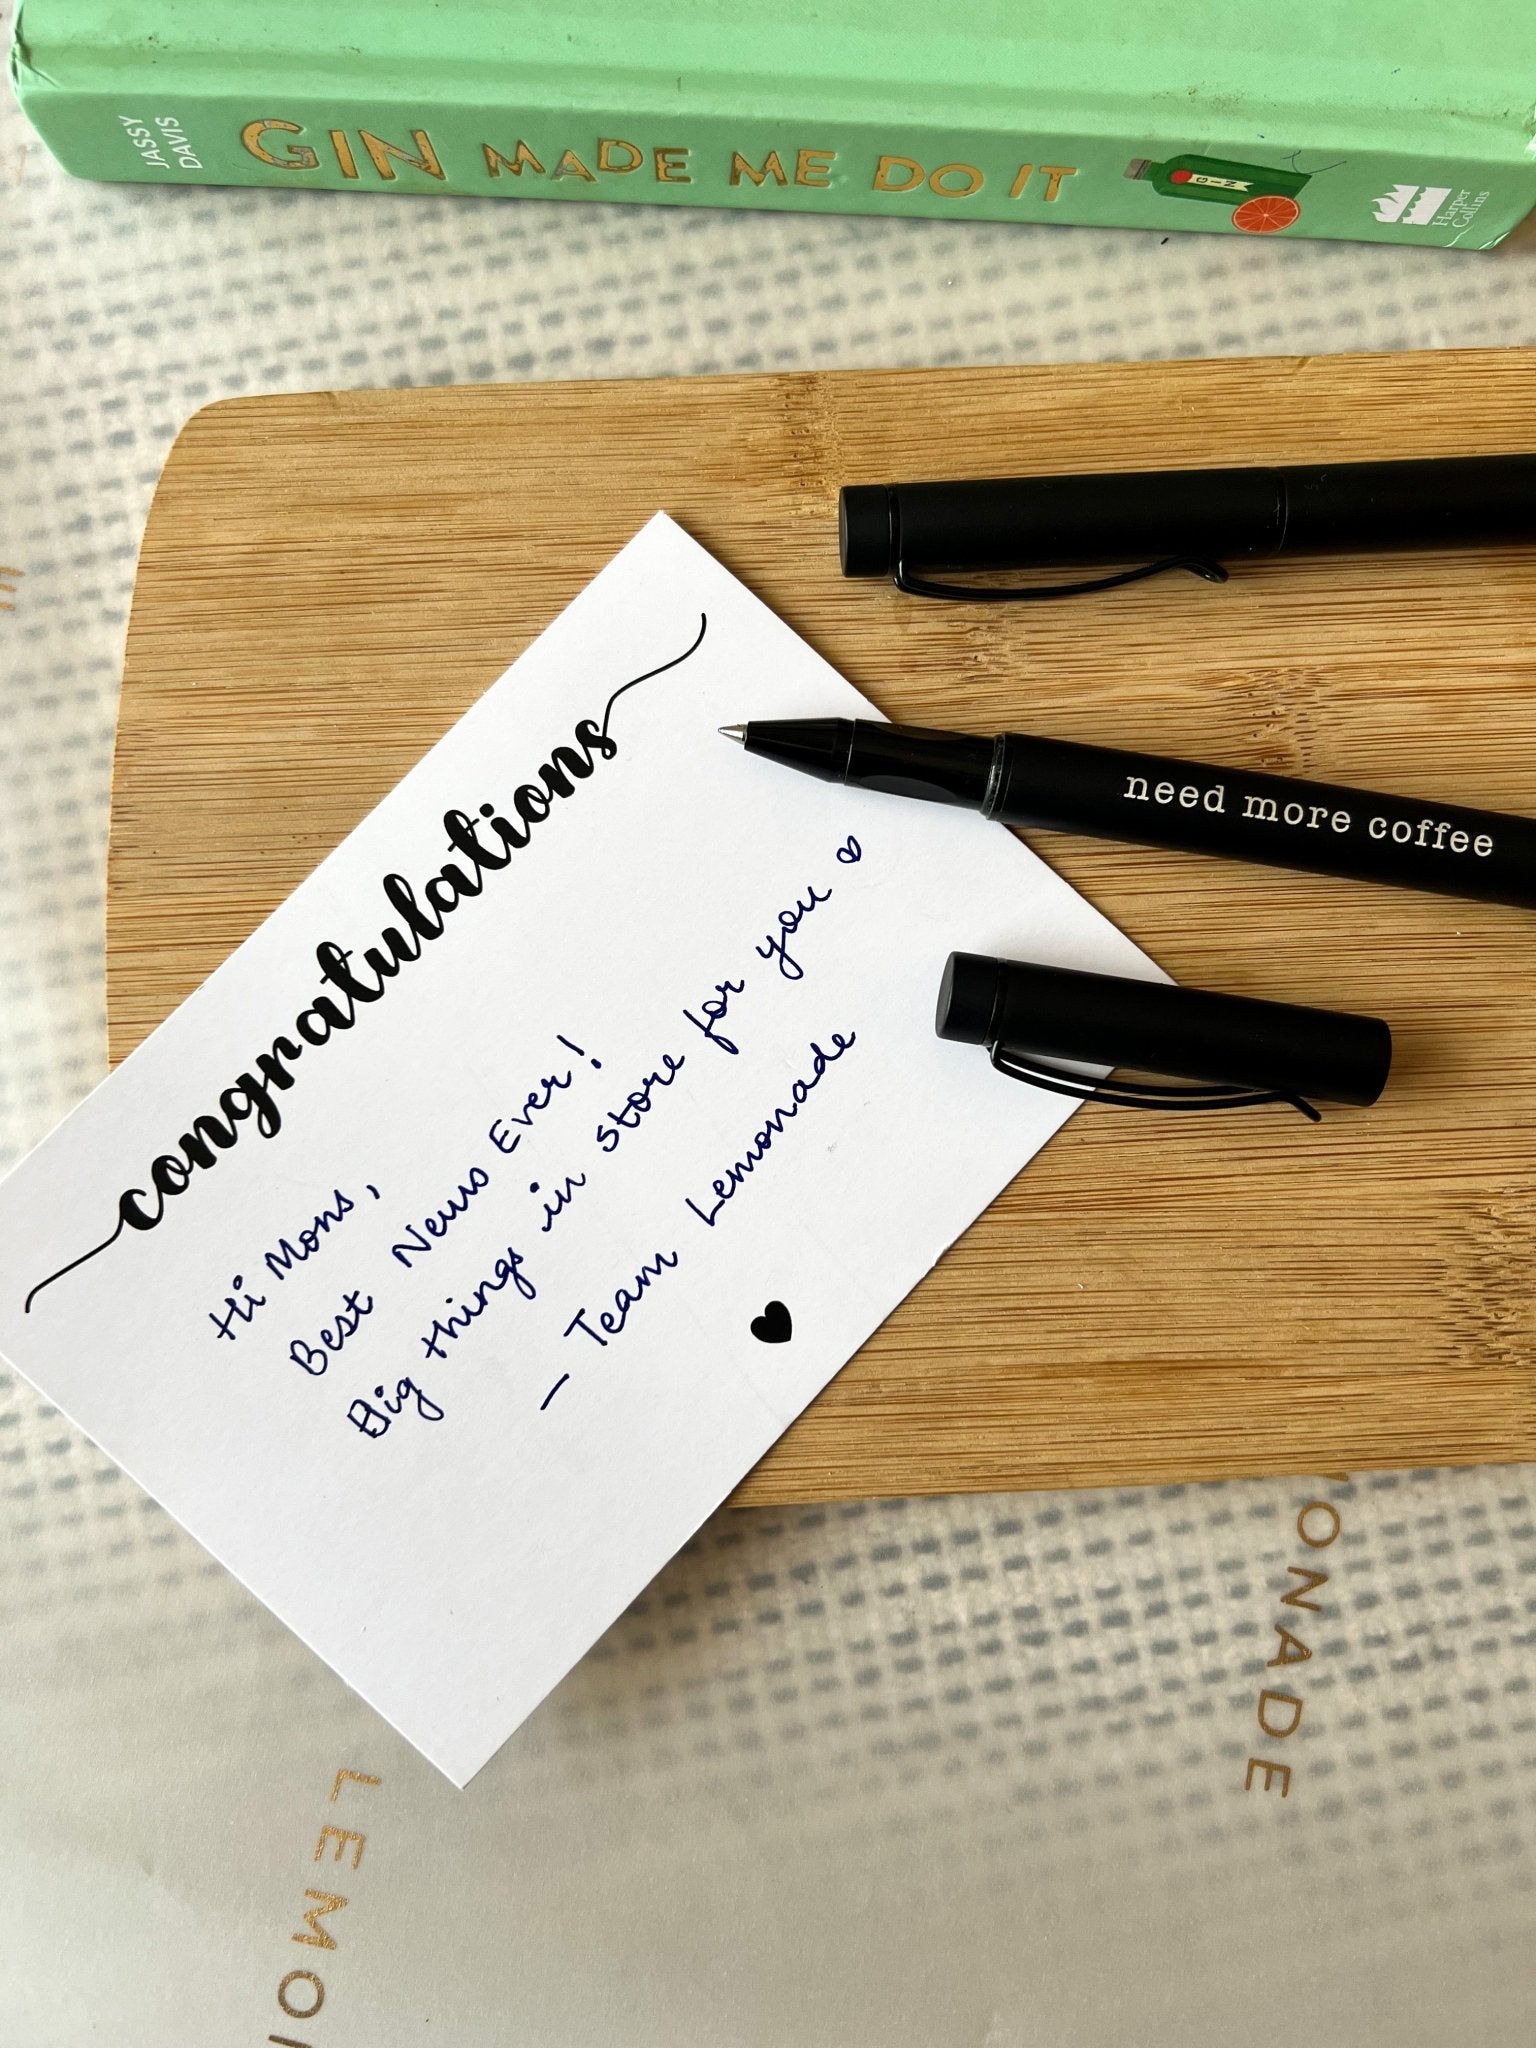 JASSY
DAVIS
GIN MADE ME DO IT
GIN
Harper
Collins
need more coffee
congratulations
Hi Mons,
Best News Ever!
Big things in store for you
- Team Lemonade
ONADE
LEMO